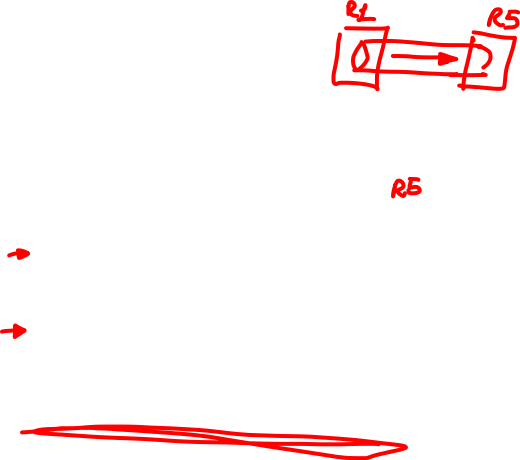 R1
R5
R5